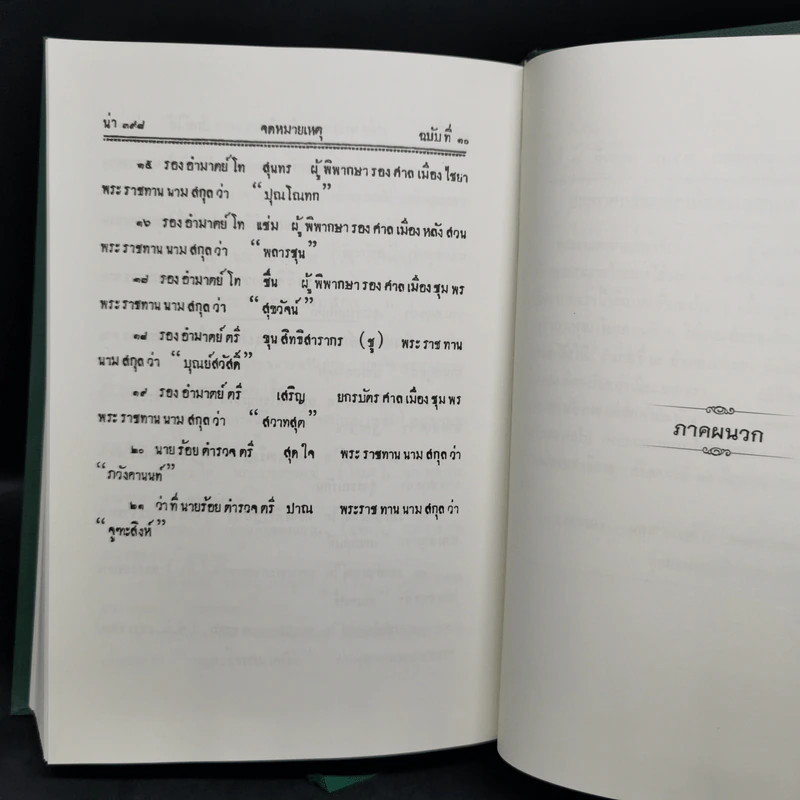 น่า ๓๙๘ จดหมายเหตุ ฉบับที่ ๑๐
๑๕ รองอำมาตย์โท สุนทร ผู้พิพากษารองศาลเมืองไชยา
พระราชทานนามสกุลว่า “ปุณโณทก”
๑๖ รองอำมาตย์โท แช่ม ผู้พิพากษารองศาลเมืองหลังสวน
พระราชทานนามสกุลว่า “พลารชุน”
๑๗ รองอำมาตย์โท ชื่น ผู้พิพากษารองศาลเมืองชุมพร
พระราชทานนามสกุลว่า “สุขวัจน์”
๑๘ รองอำมาตย์ตรี ขุนสิทธิสารากร (ชู) พระราชทาน
นามสกุลว่า “บุณย์สวัสดิ์”
๑๙ รองอำมาตย์ตรี เสริญ ยกรบัตรศาลเมืองชุมพร
พระราชทานนามสกุลว่า “สวาทสุต”
๒๐ นายร้อยตำรวจตรี สุดใจ พระราชทานนามสกุลว่า
“ภวังคานนท์”
๒๑ ว่าที่นายร้อยตำรวจตรี ปาณ พระราชทานนามสกุลว่า
“จูฑะสิงห์”
ภาคผนวก